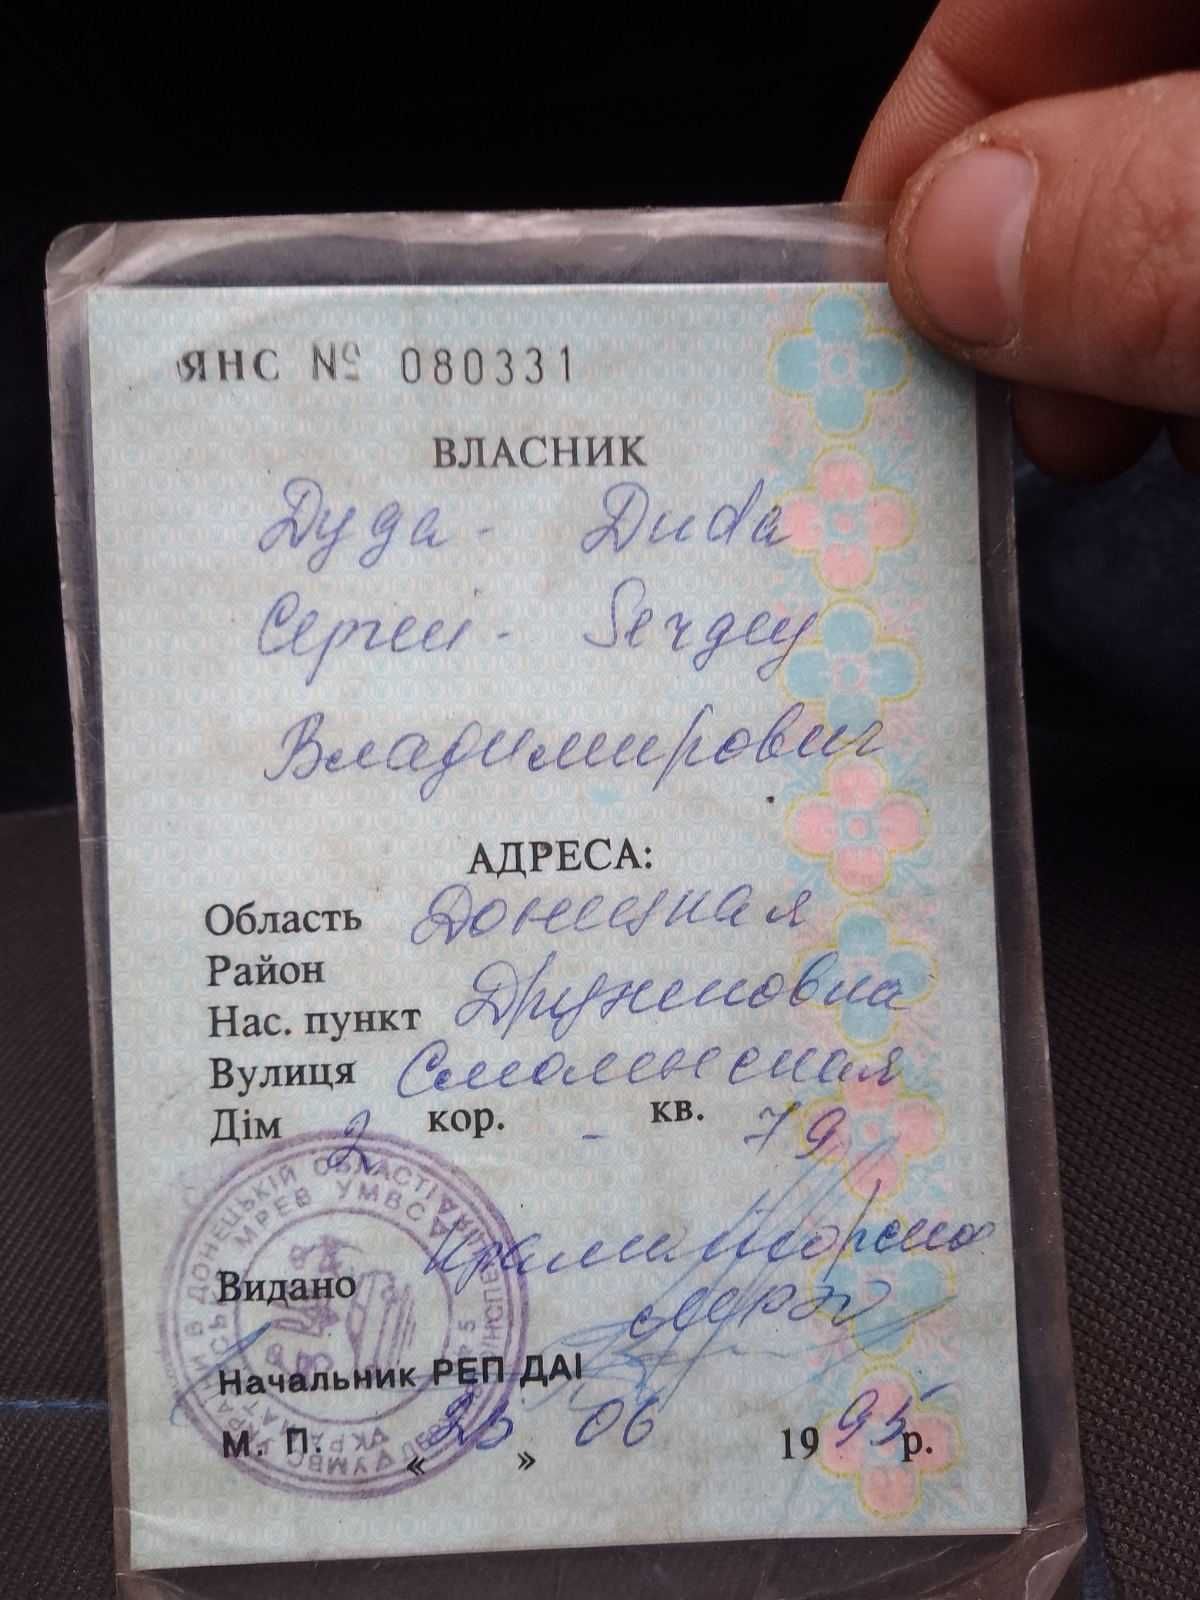 ЯНС № 080331
ВЛАСНИК
Дуда - Duda
Сергей - Sergey
Владимирович
АДРЕСА:
Область Донецкая
Район
Нас. пункт Дружковка
Вулиця Смоленская
Дім 2 кор. - кв. 79
В ДОНЕЦЬКІЙ ОБЛАСТІ
МРЕВ УМВС
Видано Краматорское
МРЭО
Начальник РЕП ДАІ
М. П. « 23 » 06 1995 р.